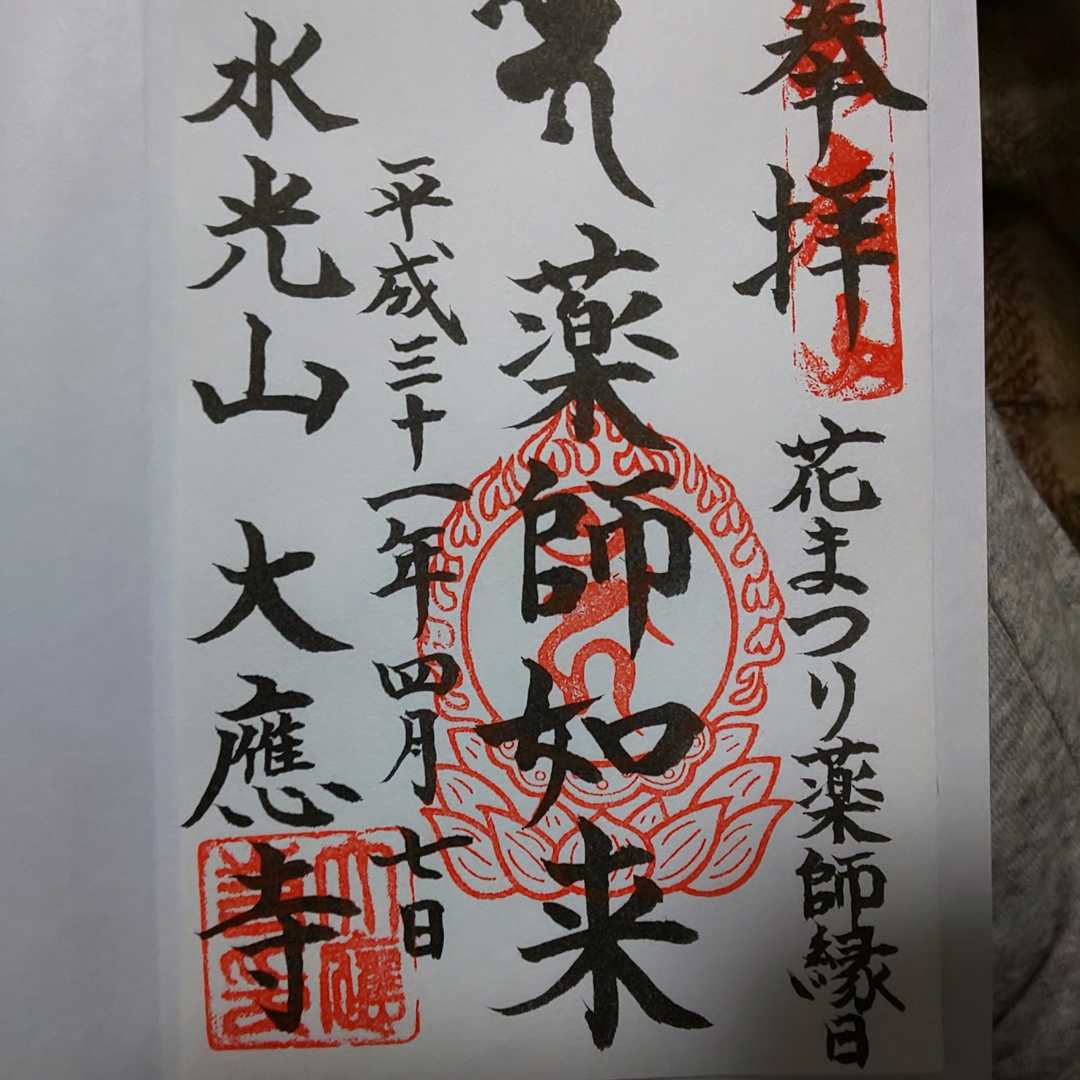 奉拝
花まつり薬師縁日
薬師如来
平成三十一年四月七日
水光山 大應寺